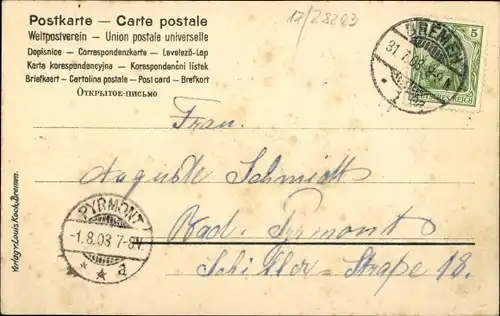 17/28203
Postkarte — Carte postale
Weltpostverein — Union postale universelle
Dopisnice — Correspondenzkarte — Levelező-Lap
Karta korespondencyjna — Korespondenční lístek
Briefkaart — Cartolina postale — Post card — Brefkort
Открытое-письмо
BREMEN
31.7.03
5
DEUTSCHES REICH
Frau.
Auguste Schmidt
Bad. Pyrmont
Schiller-Straße 18.
PYRMONT
-1.8.03 7-8V
* * a
Verlag v. Louis Koch, Bremen.